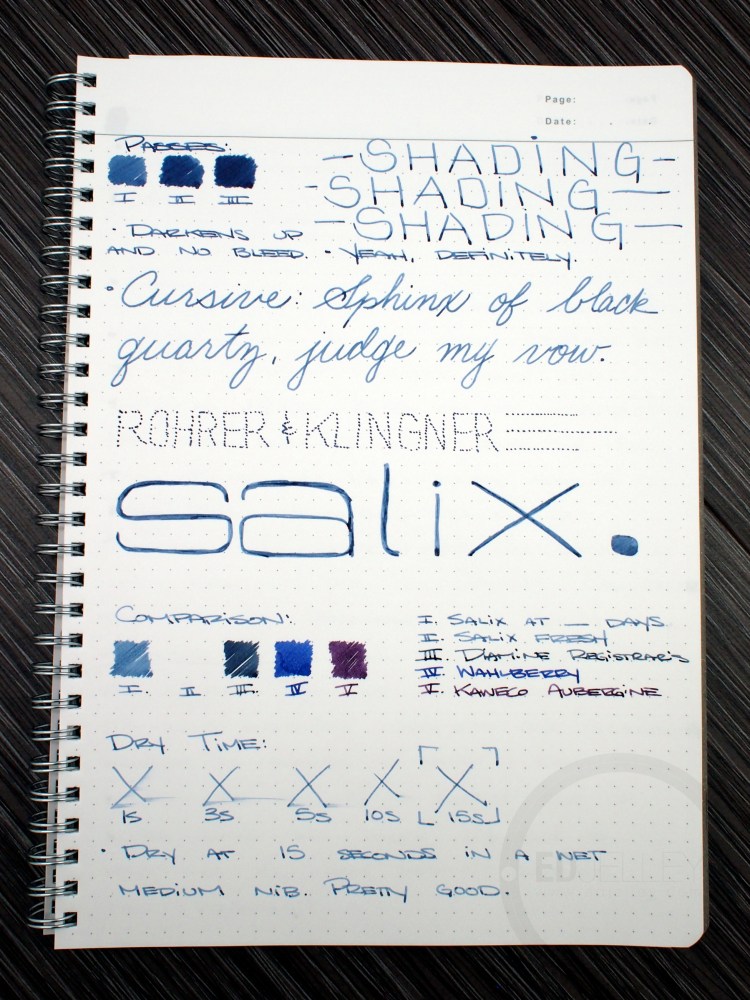 Page:
Date:
Passes:
I II III
-SHADING-
-SHADING-
-SHADING-
· Darkens up
and no bleed. · Yeah, definitely.
· Cursive: Sphinx of black
quartz, judge my vow.
ROHRER & KLINGNER
salix.
Comparison:
I. II III. IV V
I. Salix at __ days
II. Salix fresh
III. Diamine Registrar's
IV. Wahlberry
V. Kaweco Aubergine
Dry Time:
X X X X X
1s 3s 5s 10s 15s
· Dry at 15 seconds in a net
medium nib. Pretty good.
ED JELLEY